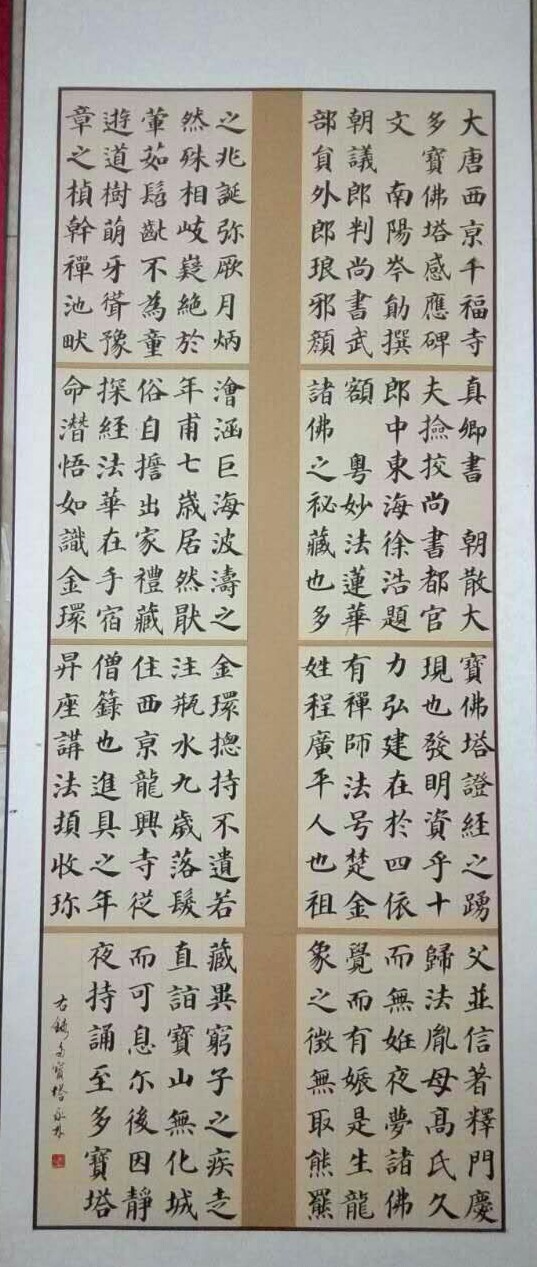 大唐西亰千福寺
多寶佛塔感應碑
文 南陽岑勛撰
朝議郎判尚書武
部負外郎琅邪顏
真卿書 朝散大
夫撿挍尚書都官
郎中東海徐浩題
額 粵妙法蓮華
諸佛之祕藏也多
寶佛塔證經之踴
現也發明資乎十
力弘建在於四依
有禪師法号楚金
姓程廣平人也祖
父並信著釋門慶
歸法胤母髙氏久
而無姙夜夢諸佛
覺而有娠是生龍
象之徵無取熊羆
之兆誕弥厥月炳
然殊相岐嶷絕於
葷茹髫齔不為童
遊道樹萌牙聳豫
章之楨幹禪池畎
澮涵巨海波濤之
年甫七歲居然猒
俗自擔出家禮藏
探經法華在手宿
命潛悟如識金環
金環揔持不遺若
注瓶水九歲落髮
住西亰龍興寺從
僧籙也進具之年
昇座講法頓收珎
藏異窮子之疾走
直詣寶山無化城
而可息尒後因靜
夜持誦至多寶塔
右錄多寶塔